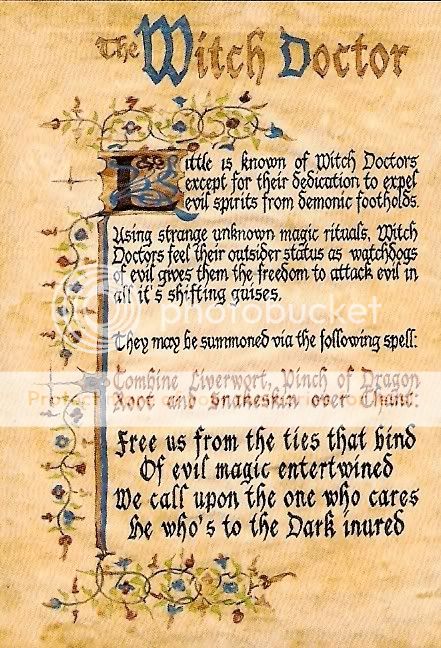 The Witch Doctor
Little is known of Witch Doctors
except for their dedication to expel
evil spirits from demonic footholds.
Using strange unknown magic rituals, Witch
Doctors feel their outsider status as watchdogs
of evil gives them the freedom to attack evil in
all it's shifting guises.
photobucket
They may be summoned via the following spell:
Combine Liverwort, Pinch of Dragon
Root and Snakeskin over Chant:
Free us from the ties that bind
Of evil magic entertwined
We call upon the one who cares
He who's to the Dark inured